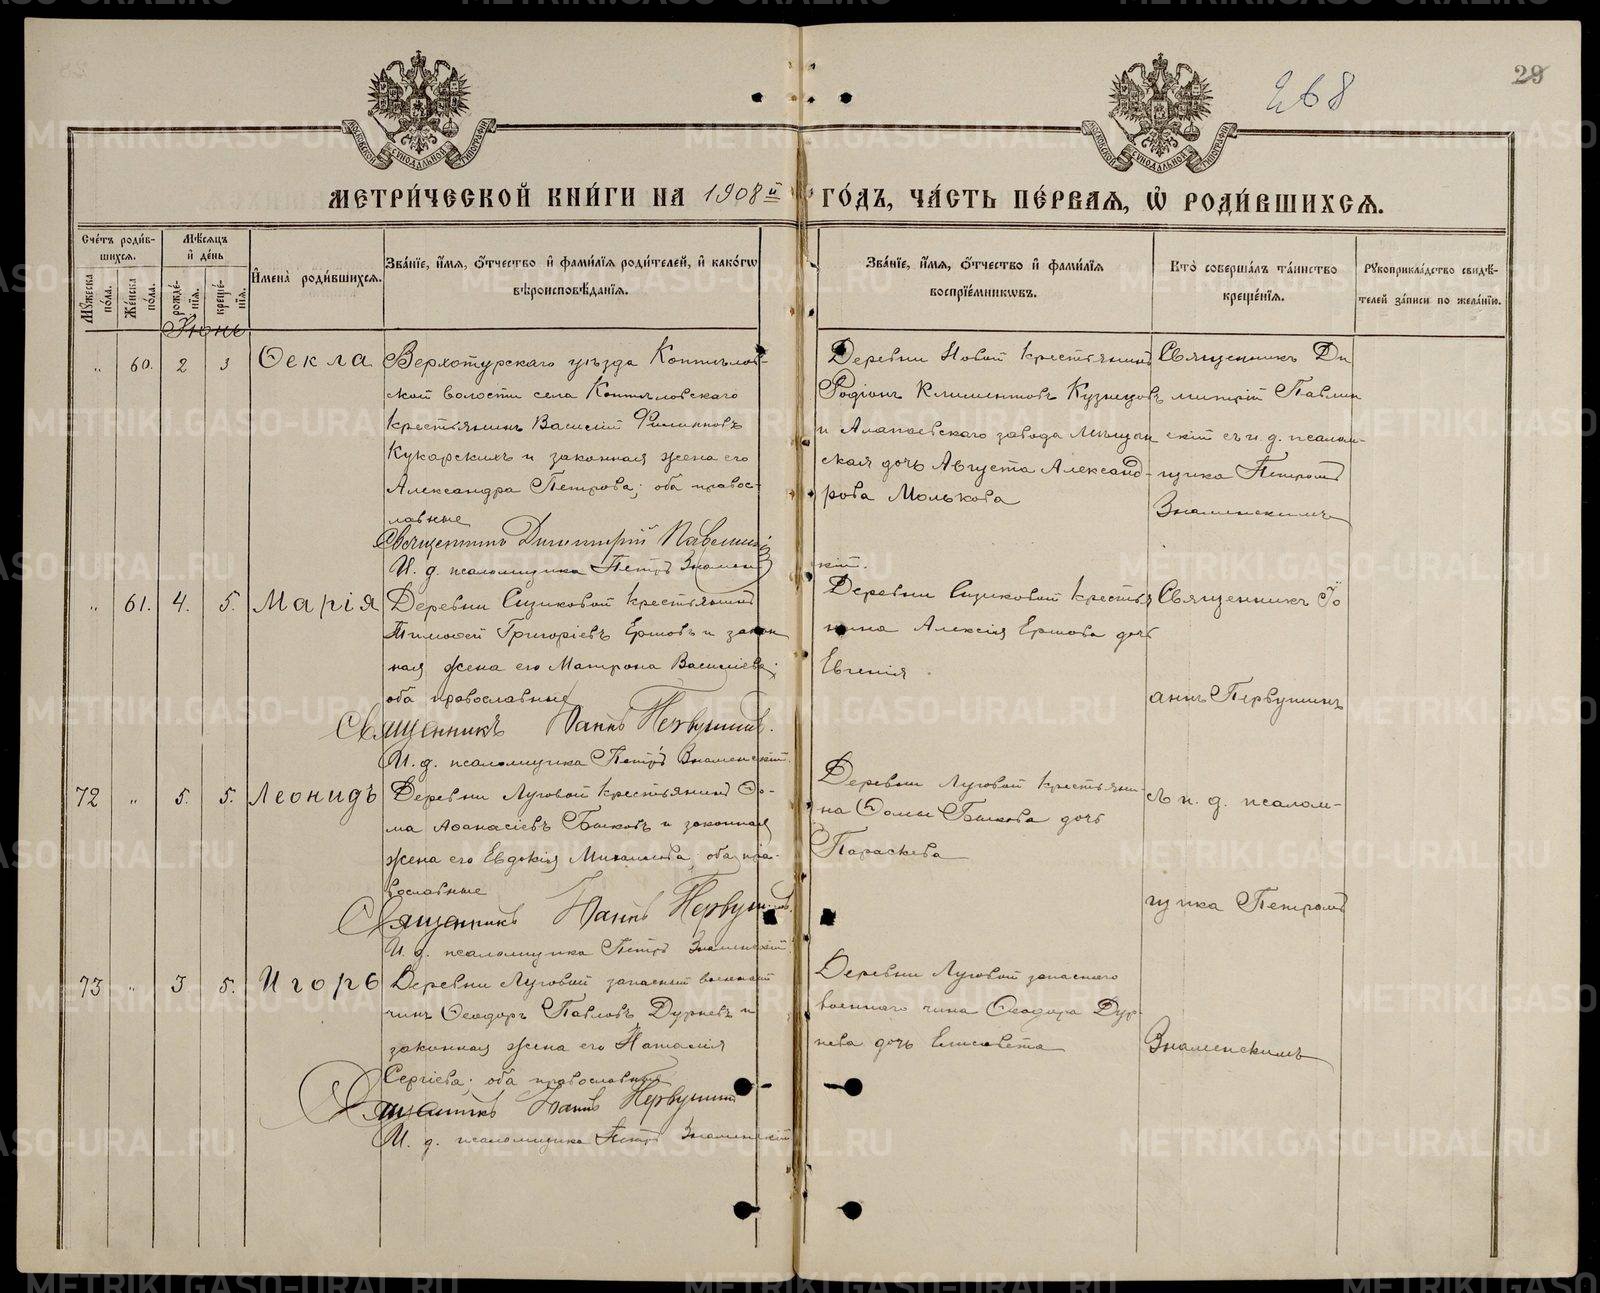 268
29
МОСКОВСКОЙ СѴНОДАЛЬНОЙ ТИПОГРАФІИ
МОСКОВСКОЙ СѴНОДАЛЬНОЙ ТИПОГРАФІИ
МЕТРИ́ЧЕСКОЙ КНИ́ГИ НА 1908й ГО́ДЪ, ЧА́СТЬ ПЕ́РВАЯ, Ѡ҆ РОДИ́ВШИХСЯ.
Сче́тъ роди́в-
шихся.
Мꙋ́жеска по́ла.
Же́нска по́ла.
Мѣ́сяцъ
и҆ де́нь
рожде́-
нїя.
креще́-
нїя.
И҆мена̀ роди́вшихся.
Зва́нїе, и҆́мя, ѻ҆́тчество и҆ фами́лїя роди́телей, и҆ како́гѡ
вѣроисповѣ́данїя.
Зва́нїе, и҆́мя, ѻ҆́тчество и҆ фами́лїя
воспрїе́мникѡвъ.
Кто̀ соверша́лъ та́инство
креще́нїя.
Рꙋкоприкла́дство свидѣ́-
телей за́писи по жела́нїю.
Іюнь
„ 60. 2 3 Ѳекла
Верхотурскаго уѣзда Коптѣлов-
ской волости села Коптѣловскаго
крестьянинъ Василій Филипповъ
Кукарскихъ и законная жена его
Александра Петрова; оба правос-
лавные
Священникъ Димитрій Павлинскій
И. д. псаломщика Петръ Знамен
скій.
Деревни Новой крестьянинъ
Родіонъ Климентовъ Кузнецовъ
и Алапаевскаго завода мѣщан
ская дочь Августа Александ-
рова Молькова
Священникъ Ди
митрій Павлин
скій съ и. д. псалом-
щика Петромъ
Знаменскимъ
„ 61. 4. 5. Марія
Деревни Сизиковой крестьянинъ
Тимоѳей Григоріевъ Ершовъ и закон
ная жена его Матрона Василіева;
оба православные
Священникъ Іоаннъ Первушинъ.
И. д. псаломщика Петръ Знаменскій.
Деревни Сизиковой крестья
нина Алексія Ершова дочь
Евгенія.
Священникъ Іо
аннъ Первушинъ
72 „ 5. 5. Леонидъ
Деревни Луговой крестьянинъ Ѳо-
ма Аѳанасіевъ Быковъ и законная
жена его Евдокія Михаилова; оба пра-
вославные
Священникъ Іоаннъ Первушинъ.
И. д. псаломщика Петръ Знаменскій
Деревни Луговой крестьяни-
на Ѳомы Быкова дочь
Параскева
съ и. д. псалом-
щика Петромъ
73 „ 3 5. Игорь
Деревни Луговой запасный военный
чинъ Ѳеодоръ Павловъ Дурневъ и
законная жена его Наталія
Сергіева; оба православные
Священникъ Іоаннъ Первушинъ
И. д. псаломщика Петръ Знаменскій
Деревни Луговой запаснаго
военнаго чина Ѳеодора Дур-
нева дочь Елисавета
Знаменскимъ
METRIKI.GASO-URAL.RU